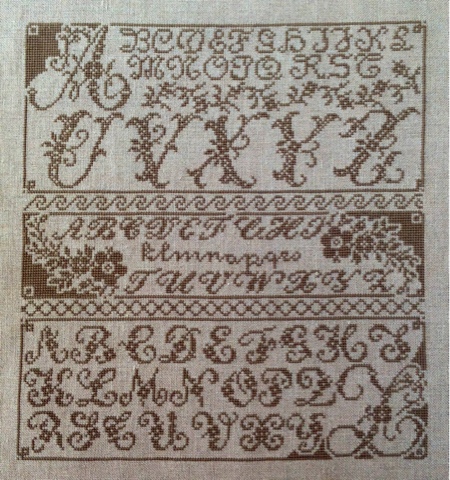 A B C D E F G H I J K L
M N O P Q R S T
U V X Y Z
A B C D E F G H I J
k l m n o p q r s
T U V W X Y Z
A B C D E F G H I J
K L M N O P Q
R S T U V X Y Z